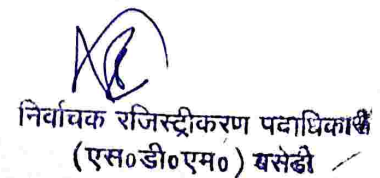 निर्वाचक रजिस्ट्रीकरण पदाधिकारी
(एस०डी०एम०) बसेडी